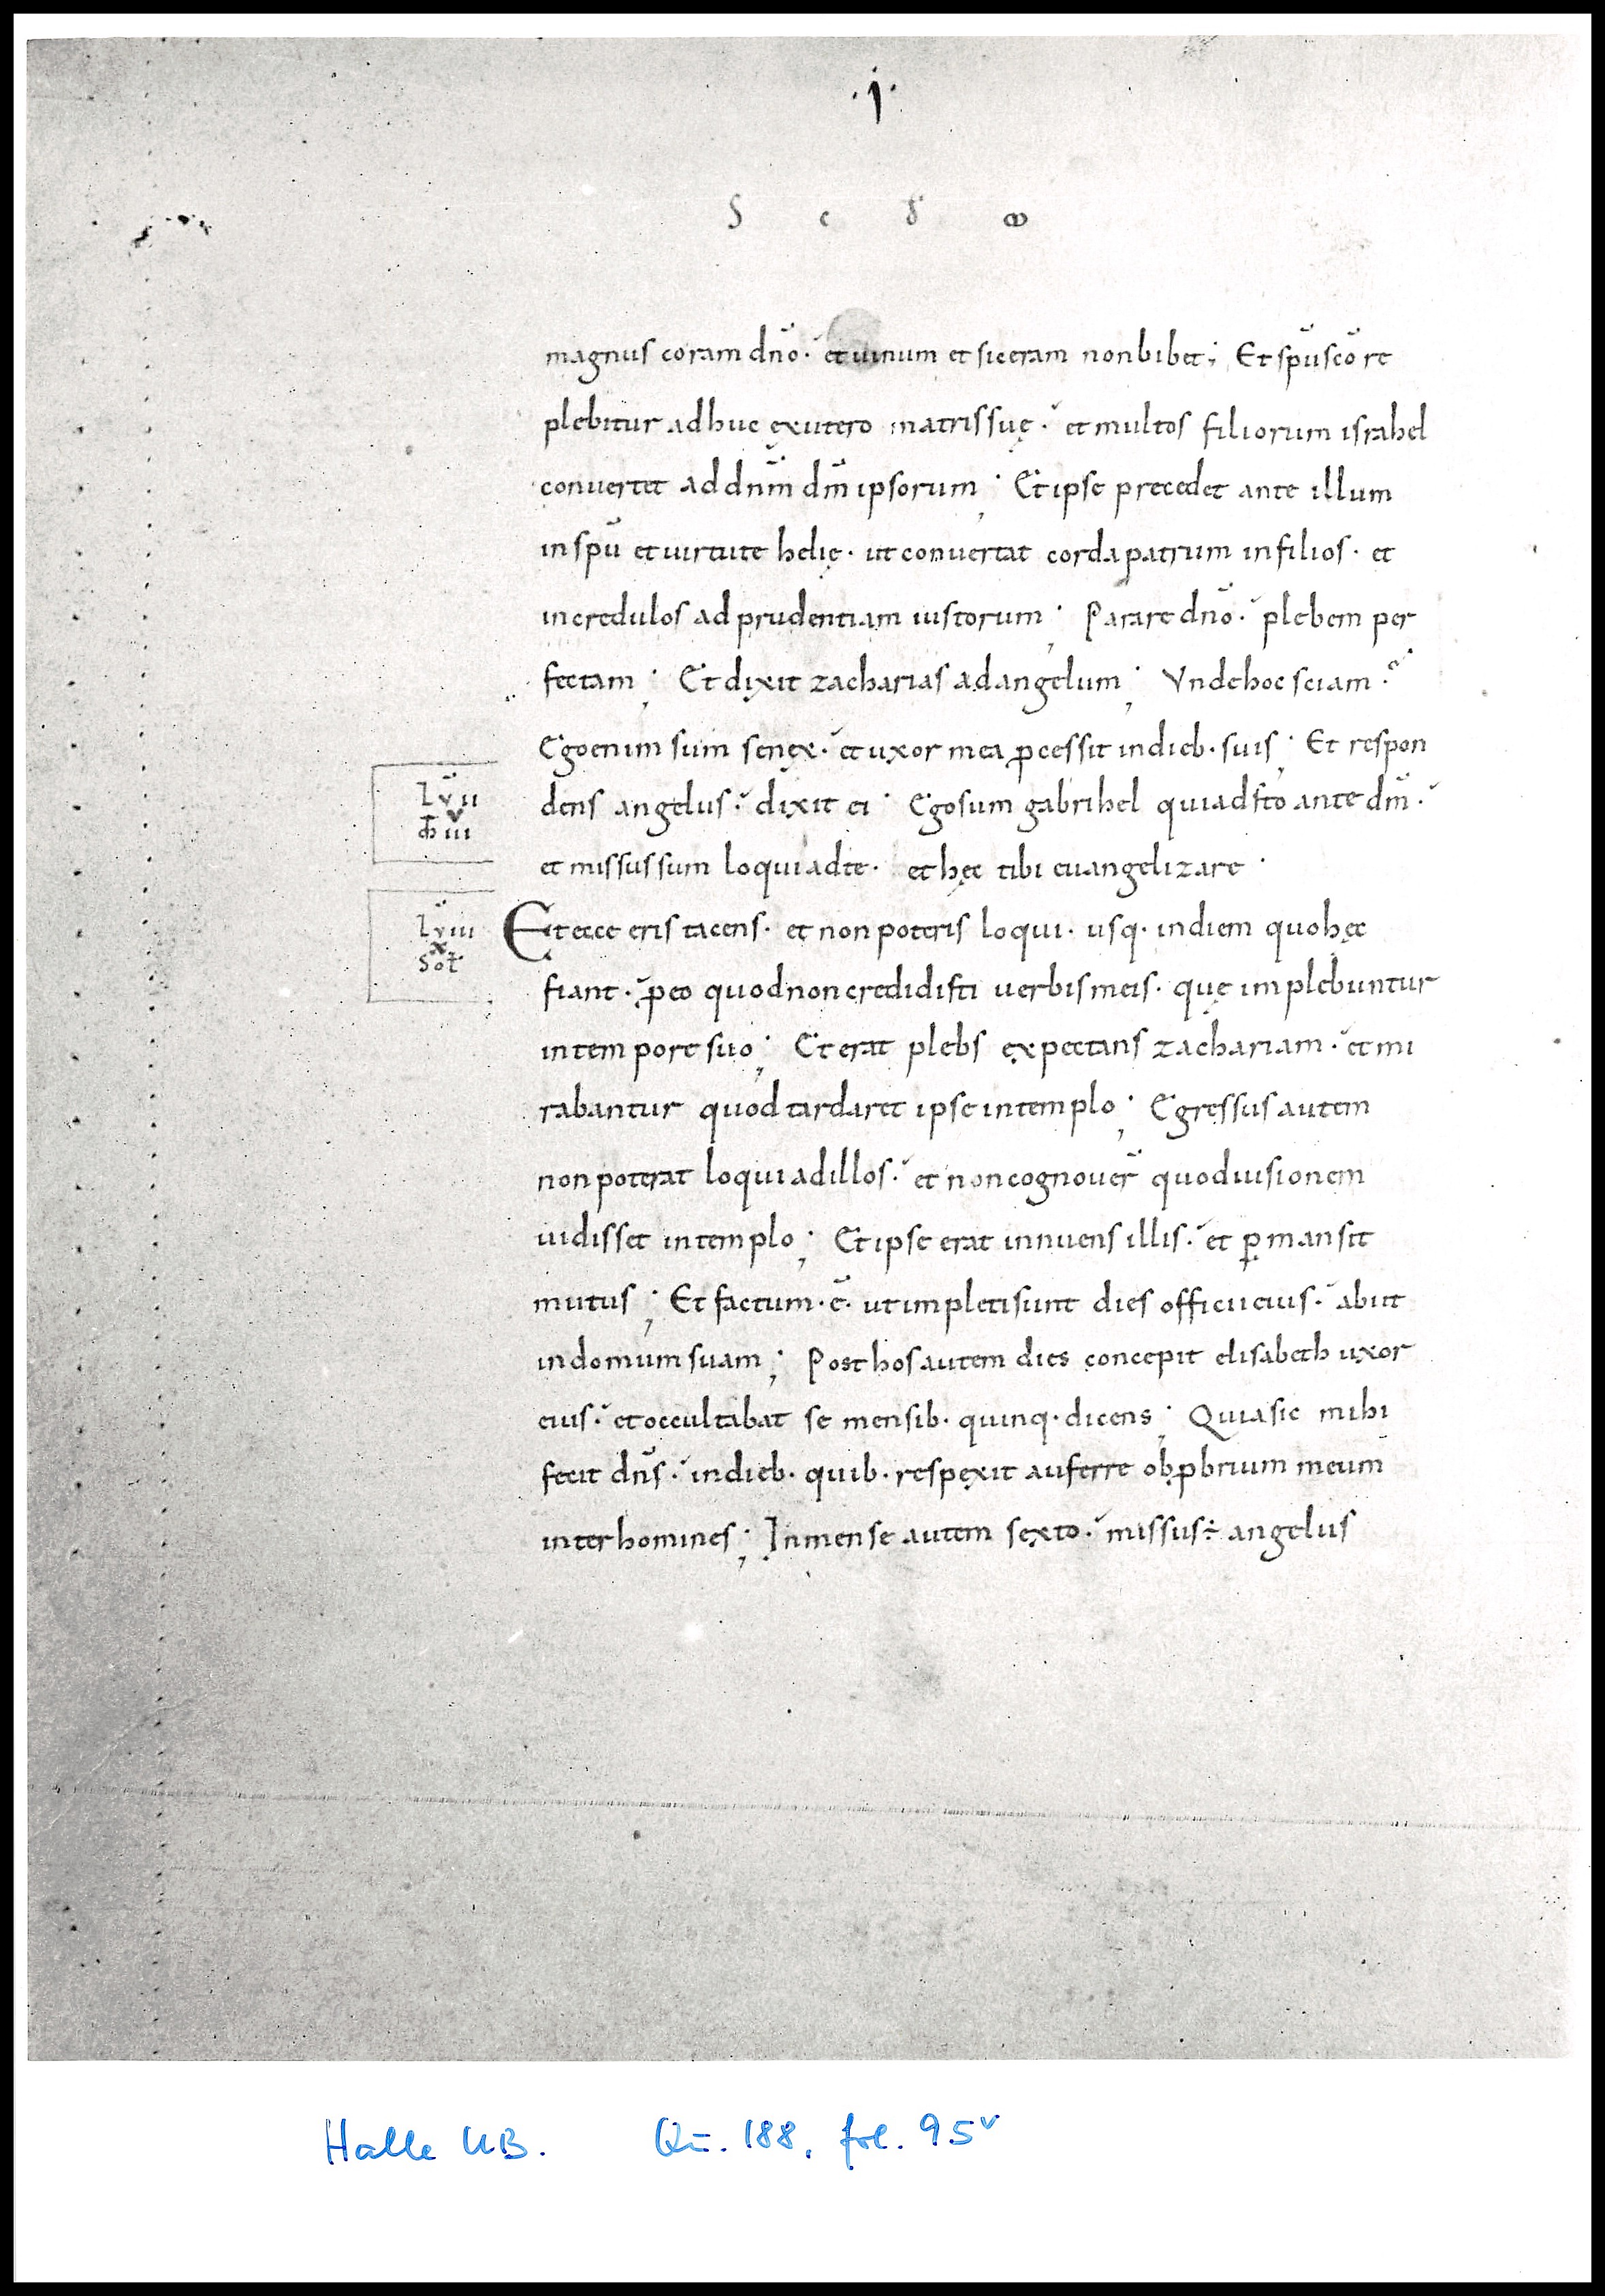 .I.
S c d m
magnus coram dn̄o. et uinum et siceram non bibet; Et sp̄u sc̄o re
plebitur adhuc ex utero matris suę. et multos filiorum israhel
conuertet ad dn̄m dm̄ ipsorum; Et ipse precedet ante illum
in sp̄u et uirtute helię. ut conuertat corda patrum in filios. et
incredulos ad prudentiam iustorum; Parare dn̄o. plebem per
fectam; Et dixit zacharias ad angelum; Vnde hoc sciam?
Ego enim sum senex. et uxor mea ꝓcessit in dieb. suis; Et respon
dens angelus. dixit ei; Ego sum gabrihel qui adsto ante dm̄.
et missus sum loqui ad te. et hęc tibi euangelizare.
Et ecce eris tacens. et non poteris loqui. usq. in diem quo hęc
fiant. ꝓ eo quod non credidisti uerbis meis. quę implebuntur
in tempore suo; Et erat plebs expectans zachariam. et mi
rabantur quod tardaret ipse in templo; Egressus autem
non poterat loqui ad illos. et non cognouer̄ quod uisionem
uidisset in templo; Et ipse erat innuens illis. et ꝑmansit
mutus; Et factum. ē. ut impleti sunt dies officii eius. abiit
in domum suam; Post hos autem dies concepit elisabeth uxor
eius. et occultabat se mensib. quinq. dicens; Quia sic mihi
fecit dn̄s. in dieb. quib. respexit auferre obꝓbrium meum
inter homines; In mense autem sexto. missus ÷ angelus
lvii
lviii
x
Sot
Halle UB. Qu. 188, fol. 95v